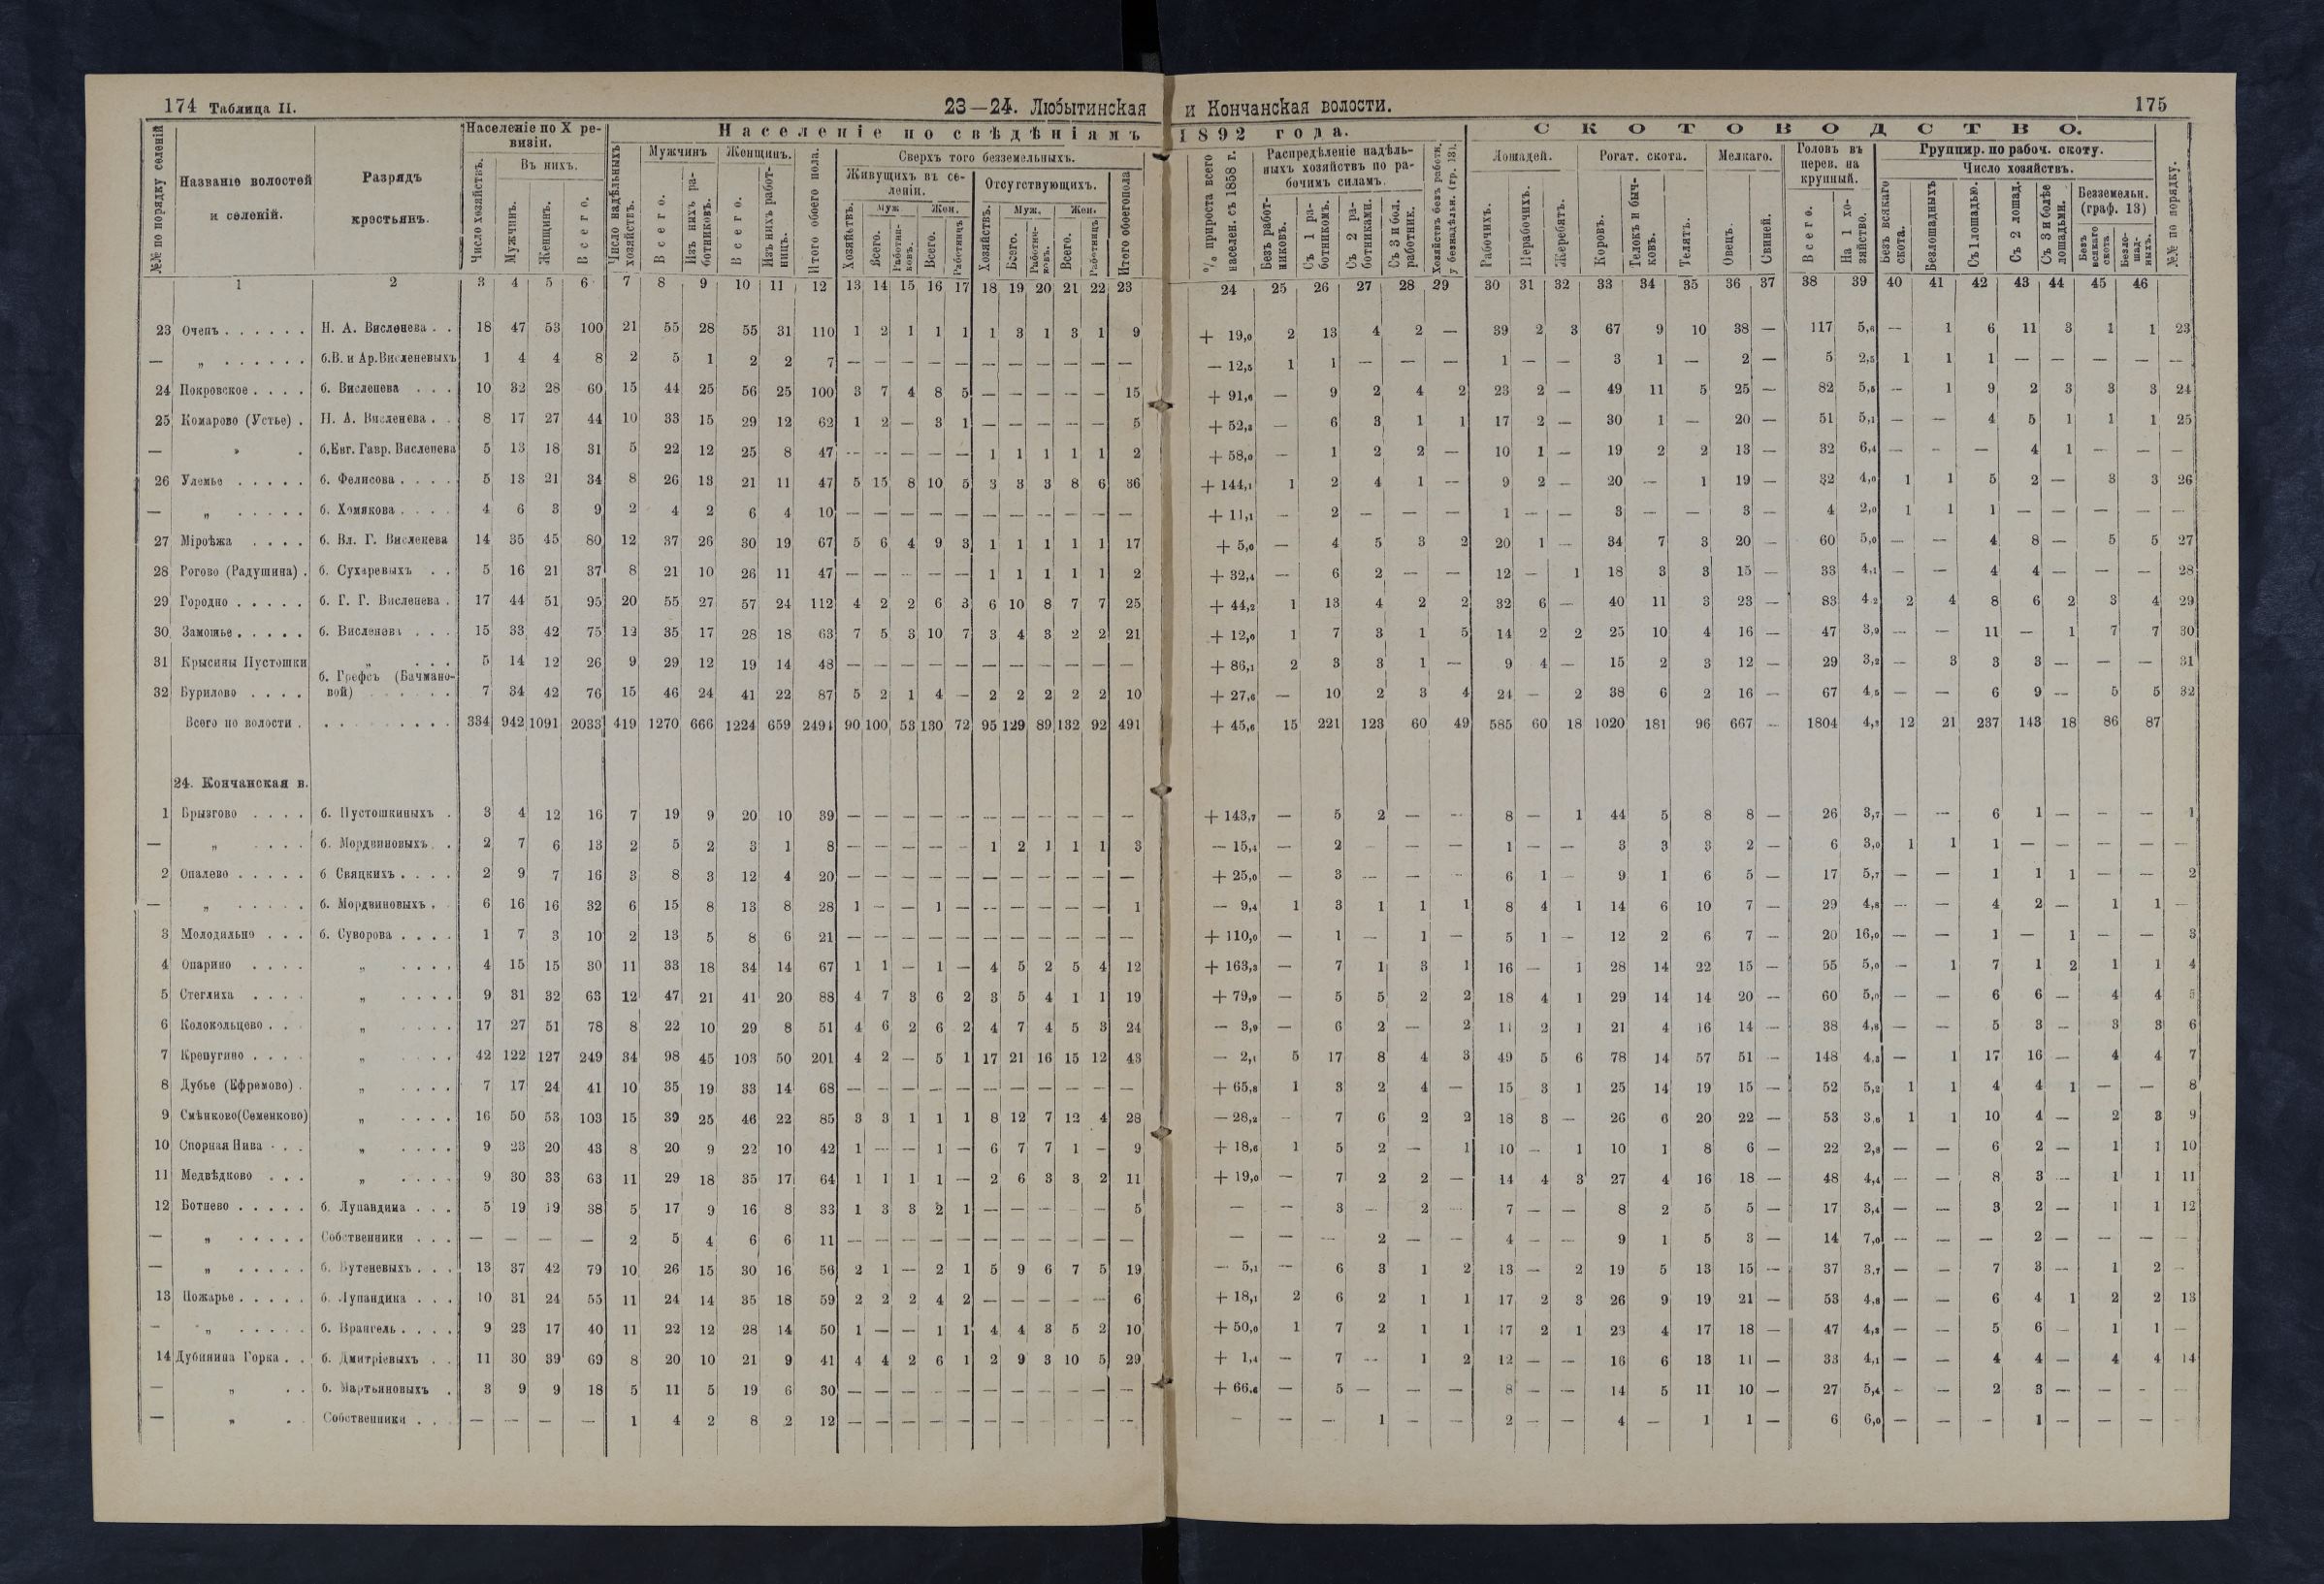 174 Таблица II.
23—24. Любытинская
и Кончанская волости.
175
№№ по порядку селеній
Названіе волостей и селеній.
Разрядъ крестьянъ.
Населеніе по X ревизіи.
Число хозяйствъ.
Въ нихъ.
Мужчинъ.
Женщинъ.
Всего.
Населеніе по свѣдѣніямъ 1892 года.
Число надѣльныхъ хозяйствъ.
Мужчинъ
Всего.
Изъ нихъ работниковъ.
Женщинъ.
Всего.
Изъ нихъ работницъ.
Итого обоего пола.
Сверхъ того безземельныхъ.
Живущихъ въ селеніи.
Отсутствующихъ.
Итого обоего пола
% прироста всего населен. съ 1858 г.
Распредѣленіе надѣльныхъ хозяйствъ по рабочимъ силамъ.
Безъ работниковъ.
Съ 1 работникомъ.
Съ 2 работниками.
Съ 3 и бол. работник.
СКОТОВОДСТВО.
Лошадей.
Рабочихъ.
Нерабочихъ.
Жеребятъ.
Рогат. скота.
Коровъ.
Телокъ и бычковъ.
Телятъ.
Мелкаго.
Овецъ.
Свиней.
Головъ въ перев. на крупный.
Всего.
На 1 хозяйство.
Группир. по рабоч. скоту.
Число хозяйствъ.
Безъ всякаго скота.
Безлошадныхъ
Съ 1 лошадью.
Съ 2 лошад.
Съ 3 и болѣе лошадьми.
Безземельн. (граф. 13)
Безъ всякаго скота
Безлошадныхъ.
№№ по порядку.
1 2 3 4 5 6 7 8 9 10 11 12 13 14 15 16 17 18 19 20 21 22 23 24 25 26 27 28 29 30 31 32 33 34 35 36 37 38 39 40 41 42 43 44 45 46
23 Очепъ Н. А. Висленева 18 47 53 100 21 55 28 55 31 110 1 2 1 1 1 1 3 1 3 1 9 + 19,0 2 13 4 2 — 39 2 3 67 9 10 38 — 117 5,6 — 1 6 11 3 1 1 23
— „ б.В. и Ар.Висленевыхъ 1 4 4 8 2 5 1 2 2 7 — — — — — — — — — — — — 12,5 1 1 — — — 1 — — 3 1 — 2 — 5 2,5 1 1 1 — — — — —
24 Покровское б. Висленева 10 32 28 60 15 44 25 56 25 100 3 7 4 8 5 — — — — — 15 + 91,6 — 9 2 4 2 23 2 — 49 11 5 25 — 82 5,5 — 1 9 2 3 3 3 24
25 Комарово (Устье) Н. А. Висленева 8 17 27 44 10 33 15 29 12 62 1 2 — 3 1 — — — — — 5 + 52,3 — 6 3 1 1 17 2 — 30 1 — 20 — 51 5,1 — — 4 5 1 1 1 25
— „ б.Евг. Гавр. Висленева 5 13 18 31 5 22 12 25 8 47 — — — — — 1 1 1 1 1 2 + 58,0 — 1 2 2 — 10 1 — 19 2 2 13 — 32 6,4 — — — 4 1 — — —
26 Улемье б. Фелисова 5 13 21 34 8 26 13 21 11 47 5 15 8 10 5 3 3 3 8 6 36 + 144,1 1 2 4 1 — 9 2 — 20 — 1 19 — 32 4,0 1 1 5 2 — 3 3 26
— „ б. Хомякова 4 6 3 9 2 4 2 6 4 10 — — — — — — — — — — — + 11,1 — 2 — — — 1 — — 3 — — 3 — 4 2,0 1 1 1 — — — — —
27 Міроѣжа б. Вл. Г. Висленева 14 35 45 80 12 37 26 30 19 67 5 6 4 9 3 1 1 1 1 1 17 + 5,0 — 4 5 3 2 20 1 — 34 7 3 20 — 60 5,0 — — 4 8 — 5 5 27
28 Рогово (Радушина) б. Сухаревыхъ 5 16 21 37 8 21 10 26 11 47 — — — — — 1 1 1 1 1 2 + 32,4 — 6 2 — — 12 — 1 18 3 3 15 — 33 4,1 — — 4 4 — — — 28
29 Городно б. Г. Г. Висленева 17 44 51 95 20 55 27 57 24 112 4 2 2 6 3 6 10 8 7 7 25 + 44,2 1 13 4 2 2 32 6 — 40 11 3 23 — 83 4,2 2 4 8 6 2 3 4 29
30 Замошье б. Висленева 15 33 42 75 12 35 17 28 18 63 7 5 3 10 7 3 4 3 2 2 21 + 12,0 1 7 3 1 5 14 2 2 25 10 4 16 — 47 3,9 — — 11 — 1 7 7 30
31 Крысины Пустошки „ 5 14 12 26 9 29 12 19 14 48 — — — — — — — — — — — + 86,1 2 3 3 1 — 9 4 — 15 2 3 12 — 29 3,2 — 3 3 3 — — — 31
32 Бурилово б. Грефсъ (Бачмановой) 7 34 42 76 15 46 24 41 22 87 5 2 1 4 — 2 2 2 2 2 10 + 27,6 — 10 2 3 4 24 — 2 38 6 2 16 — 67 4,5 — — 6 9 — 5 5 32
Всего по волости 334 942 1091 2033 419 1270 666 1224 659 2494 90 100 53 130 72 95 129 89 132 92 491 + 45,6 15 221 123 60 49 585 60 18 1020 181 96 667 — 1804 4,3 12 21 237 143 18 86 87
24. Кончанская в.
1 Брызгово б. Пустошкиныхъ 3 4 12 16 7 19 9 20 10 39 — — — — — — — — — — — + 143,7 — 5 2 — — 8 — 1 44 5 8 8 — 26 3,7 — — 6 1 — — — 1
— „ б. Мордвиновыхъ 2 7 6 13 2 5 2 3 1 8 — — — — — 1 2 1 1 1 3 — 15,4 — 2 — — — 1 — — 3 3 3 2 — 6 3,0 1 1 1 — — — — —
2 Опалево б Свяцкихъ 2 9 7 16 3 8 3 12 4 20 — — — — — — — — — — — + 25,0 — 3 — — — 6 1 — 9 1 6 5 — 17 5,7 — — 1 1 1 — — 2
— „ б. Мордвиновыхъ 6 16 16 32 6 15 8 13 8 28 1 — — 1 — — — — — — 1 — 9,4 1 3 1 1 1 8 4 1 14 6 10 7 — 29 4,8 — — 4 2 — 1 1 —
3 Молодильно б. Суворова 1 7 3 10 2 13 5 8 6 21 — — — — — — — — — — — + 110,0 — 1 — 1 — 5 1 — 12 2 6 7 — 20 16,0 — — 1 — 1 — — 3
4 Опарино „ 4 15 15 30 11 33 18 34 14 67 1 1 — 1 — 4 5 2 5 4 12 + 163,3 — 7 1 3 1 16 — 1 28 14 22 15 — 55 5,0 — 1 7 1 2 1 1 4
5 Стеглиха „ 9 31 32 63 12 47 21 41 20 88 4 7 3 6 2 3 5 4 1 1 19 + 79,9 — 5 5 2 2 18 4 1 29 14 14 20 — 60 5,0 — — 6 6 — 4 4 5
6 Колокольцево „ 17 27 51 78 8 22 10 29 8 51 4 6 2 6 2 4 7 4 5 3 24 — 3,9 — 6 2 — 2 11 2 1 21 4 16 14 — 38 4,8 — — 5 3 — 3 3 6
7 Крепугино „ 42 122 127 249 34 98 45 103 50 201 4 2 — 5 1 17 21 16 15 12 43 — 2,1 5 17 8 4 3 49 5 6 78 14 57 51 — 148 4,3 — 1 17 16 — 4 4 7
8 Дубье (Ефремово) „ 7 17 24 41 10 35 19 33 14 68 — — — — — — — — — — — + 65,8 1 3 2 4 — 15 3 1 25 14 19 15 — 52 5,2 1 1 4 4 1 — — 8
9 Смѣнково(Семенково) „ 16 50 53 103 15 39 25 46 22 85 3 3 1 1 1 8 12 7 12 4 28 — 28,2 — 7 6 2 2 18 3 — 26 6 20 22 — 53 3,6 1 1 10 4 — 2 3 9
10 Спорная Нива „ 9 23 20 43 8 20 9 22 10 42 1 — — 1 — 6 7 7 1 — 9 + 18,6 1 5 2 — 1 10 — 1 10 1 8 6 — 22 2,8 — — 6 2 — 1 1 10
11 Медвѣдково „ 9 30 33 63 11 29 18 35 17 64 1 1 1 1 — 2 6 3 3 2 11 + 19,0 — 7 2 2 — 14 4 3 27 4 16 18 — 48 4,4 — — 8 3 — 1 1 11
12 Ботнево б. Лупандина 5 19 19 38 5 17 9 16 8 33 1 3 3 2 1 — — — — — 5 — — 3 — 2 — 7 — — 8 2 5 5 — 17 3,4 — — 3 2 — 1 1 12
— „ Собственники — — — — 2 5 4 6 6 11 — — — — — — — — — — — — — — 2 — — 4 — — 9 1 5 3 — 14 7,0 — — — 2 — — — —
— „ б. Бутеневыхъ 13 37 42 79 10 26 15 30 16 56 2 1 — 2 1 5 9 6 7 5 19 — 5,1 — 6 3 1 2 13 — 2 19 5 13 15 — 37 3,7 — — 7 3 — 1 2 —
13 Пожарье б. Лупандина 10 31 24 55 11 24 14 35 18 59 2 2 2 4 2 — — — — — 6 + 18,1 2 6 2 1 1 17 2 3 26 9 19 21 — 53 4,8 — — 6 4 1 2 2 13
— „ б. Врангель 9 23 17 40 11 22 12 28 14 50 1 — — 1 1 4 4 3 5 2 10 + 50,0 1 7 2 1 1 17 2 1 23 4 17 18 — 47 4,3 — — 5 6 — 1 1 —
14 Дубинина Горка б. Дмитріевыхъ 11 30 39 69 8 20 10 21 9 41 4 4 2 6 1 2 9 3 10 5 29 + 1,4 — 7 — 1 2 12 — — 16 6 13 11 — 33 4,1 — — 4 4 — 4 4 14
— „ б. Мартьяновыхъ 3 9 9 18 5 11 5 19 6 30 — — — — — — — — — — — + 66,6 — 5 — — — 8 — — 14 5 11 10 — 27 5,4 — — 2 3 — — — —
— „ Собственники — — — — 1 4 2 8 2 12 — — — — — — — — — — — — — — 1 — — 2 — — 4 — 1 1 — 6 6,0 — — — 1 — — — —